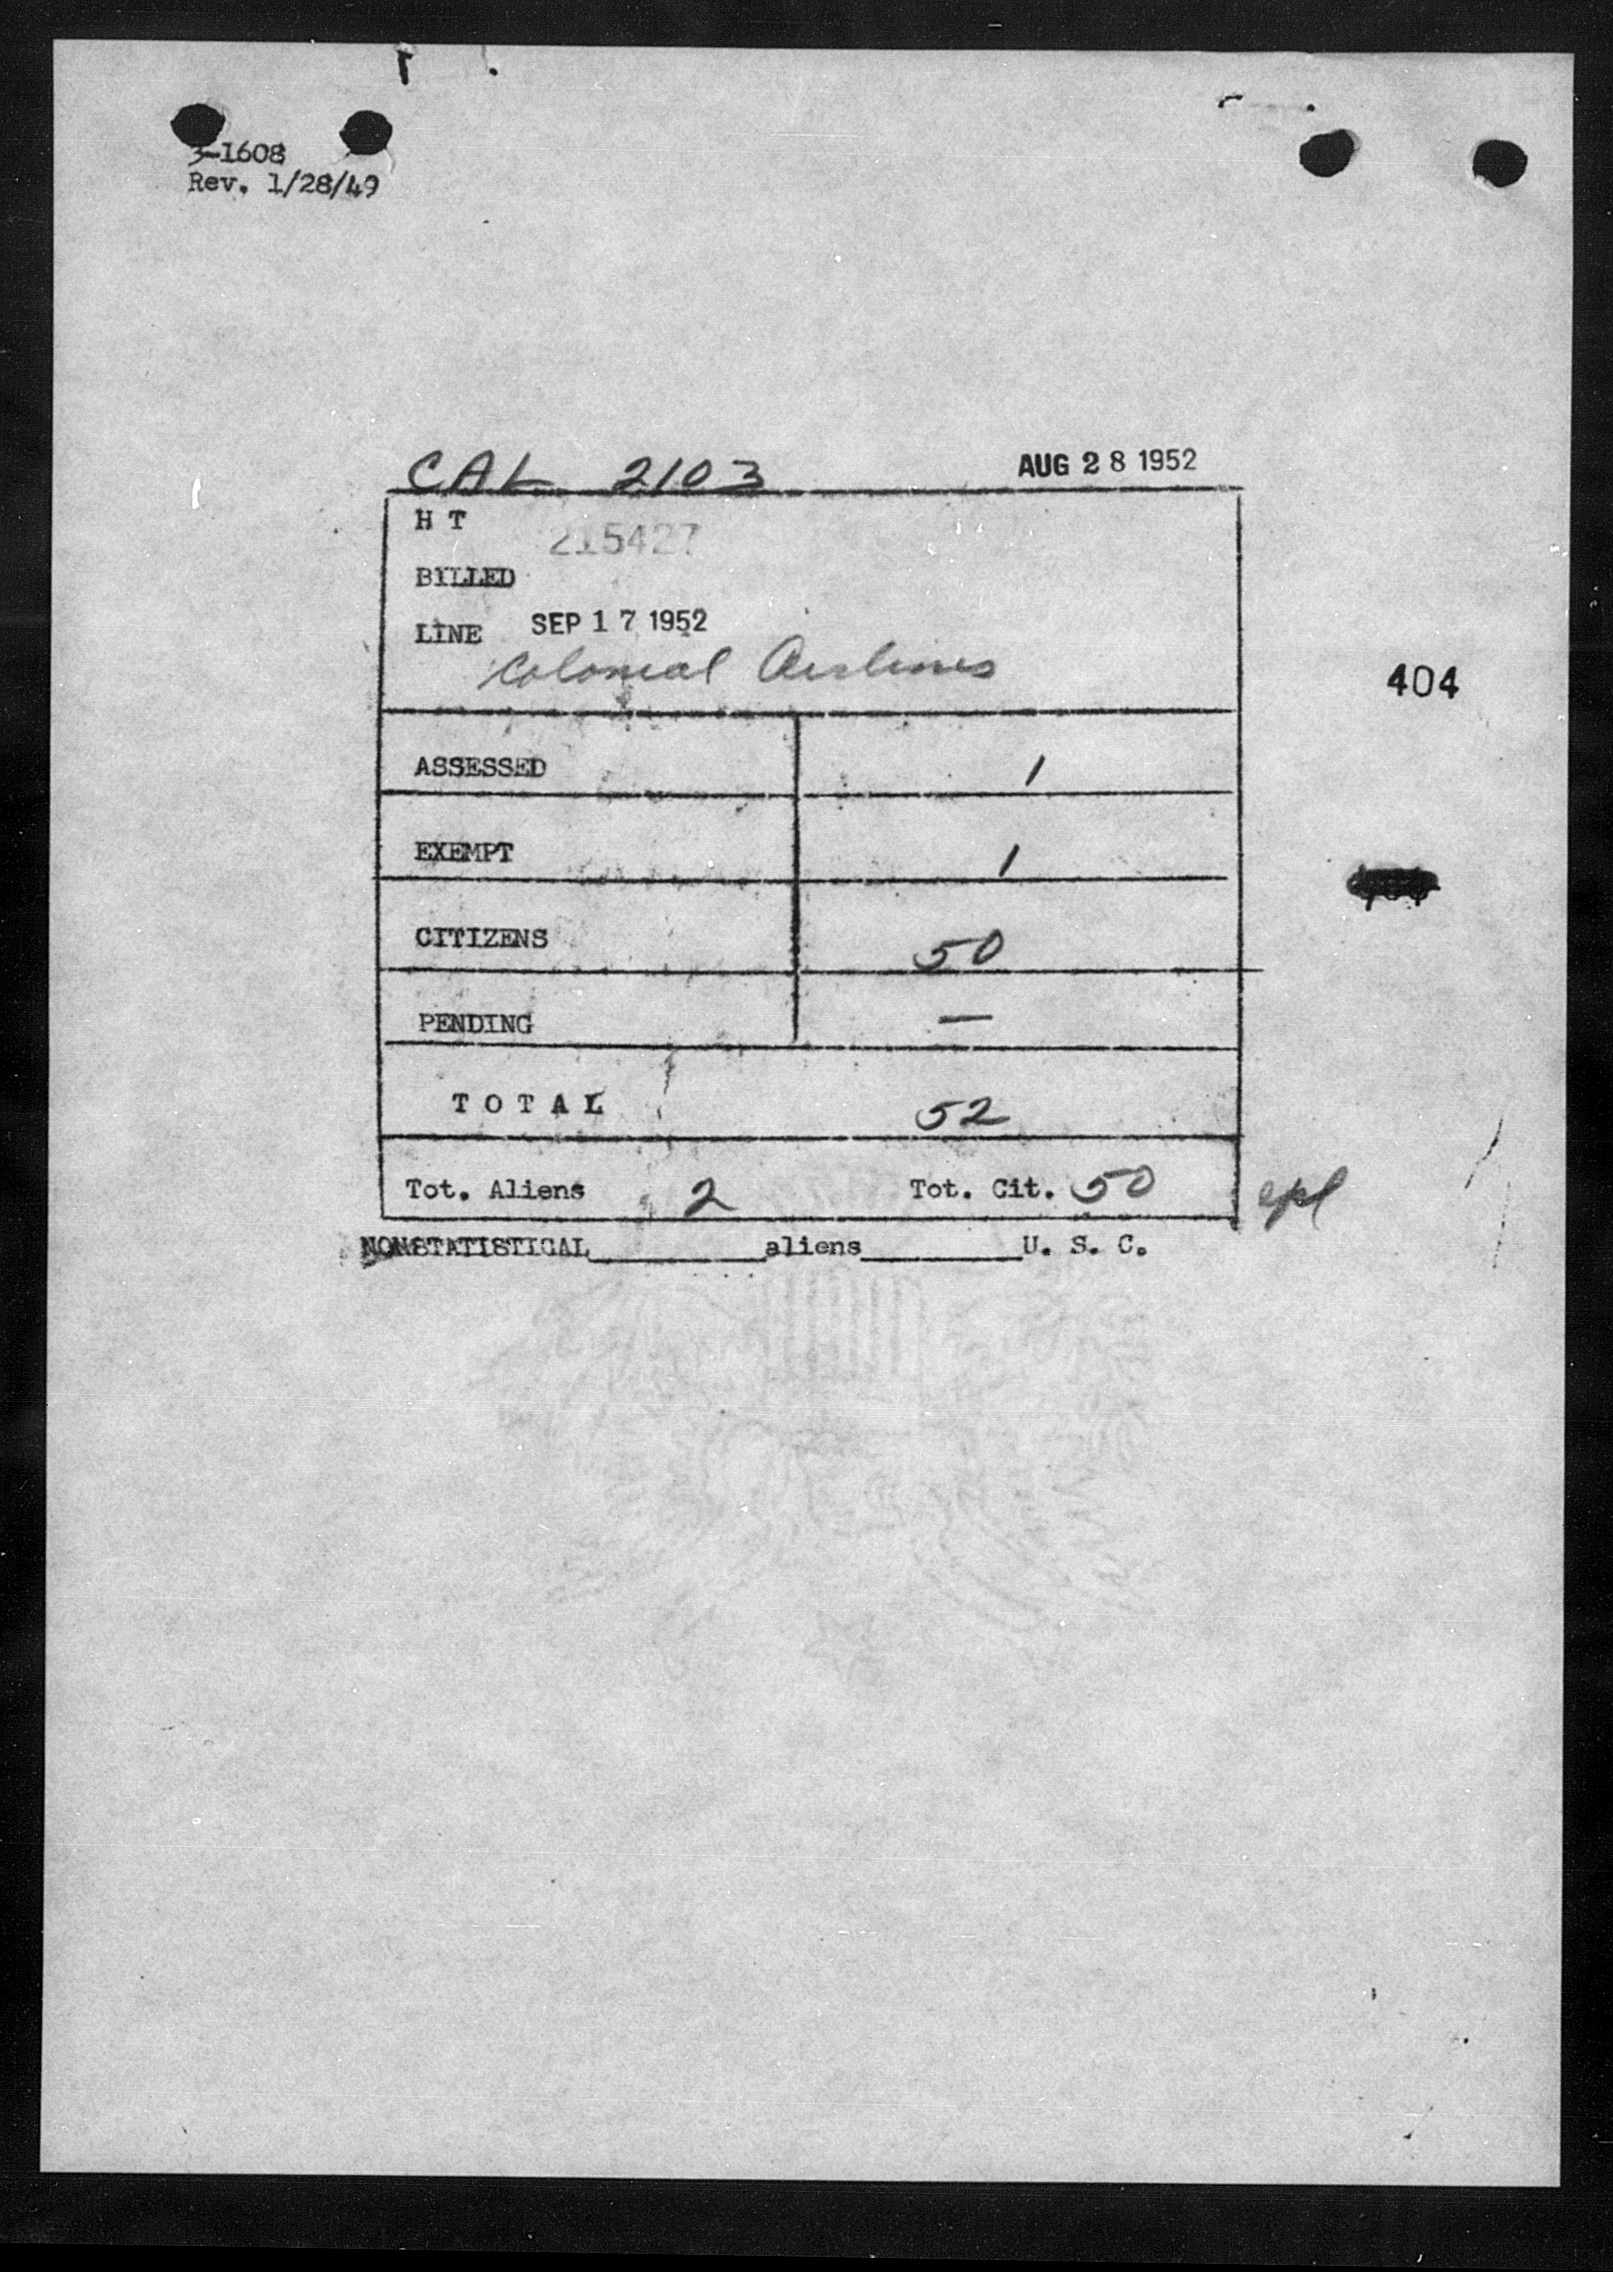 3-1608
Rev. 1/28/49
CAL 2103 AUG 28 1952
H T 215427
BILLED
LINE SEP 17 1952
Colonial Airlines
404
ASSESSED 1
EXEMPT 1
CITIZENS 50
PENDING —
TOTAL 52
Tot. Aliens 2 Tot. Cit. 50
NONSTATISTICAL________aliens________U. S. C.